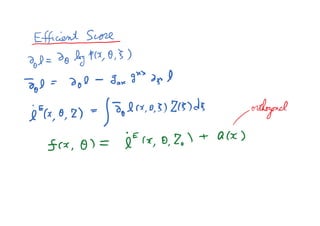 Efficient Score
∂_θ l = ∂_θ log p(x, θ, ξ)
∂̄_θ l = ∂_θ l − g_{ax} g^{xx} ∂_ξ l
l̇^E(x, θ, Z) = ∫ ∂̄_θ l(x, θ, ξ) Z(ξ) dξ
orthogonal
f(x, θ) = l̇^E(x, θ, Z₀) + a(x)